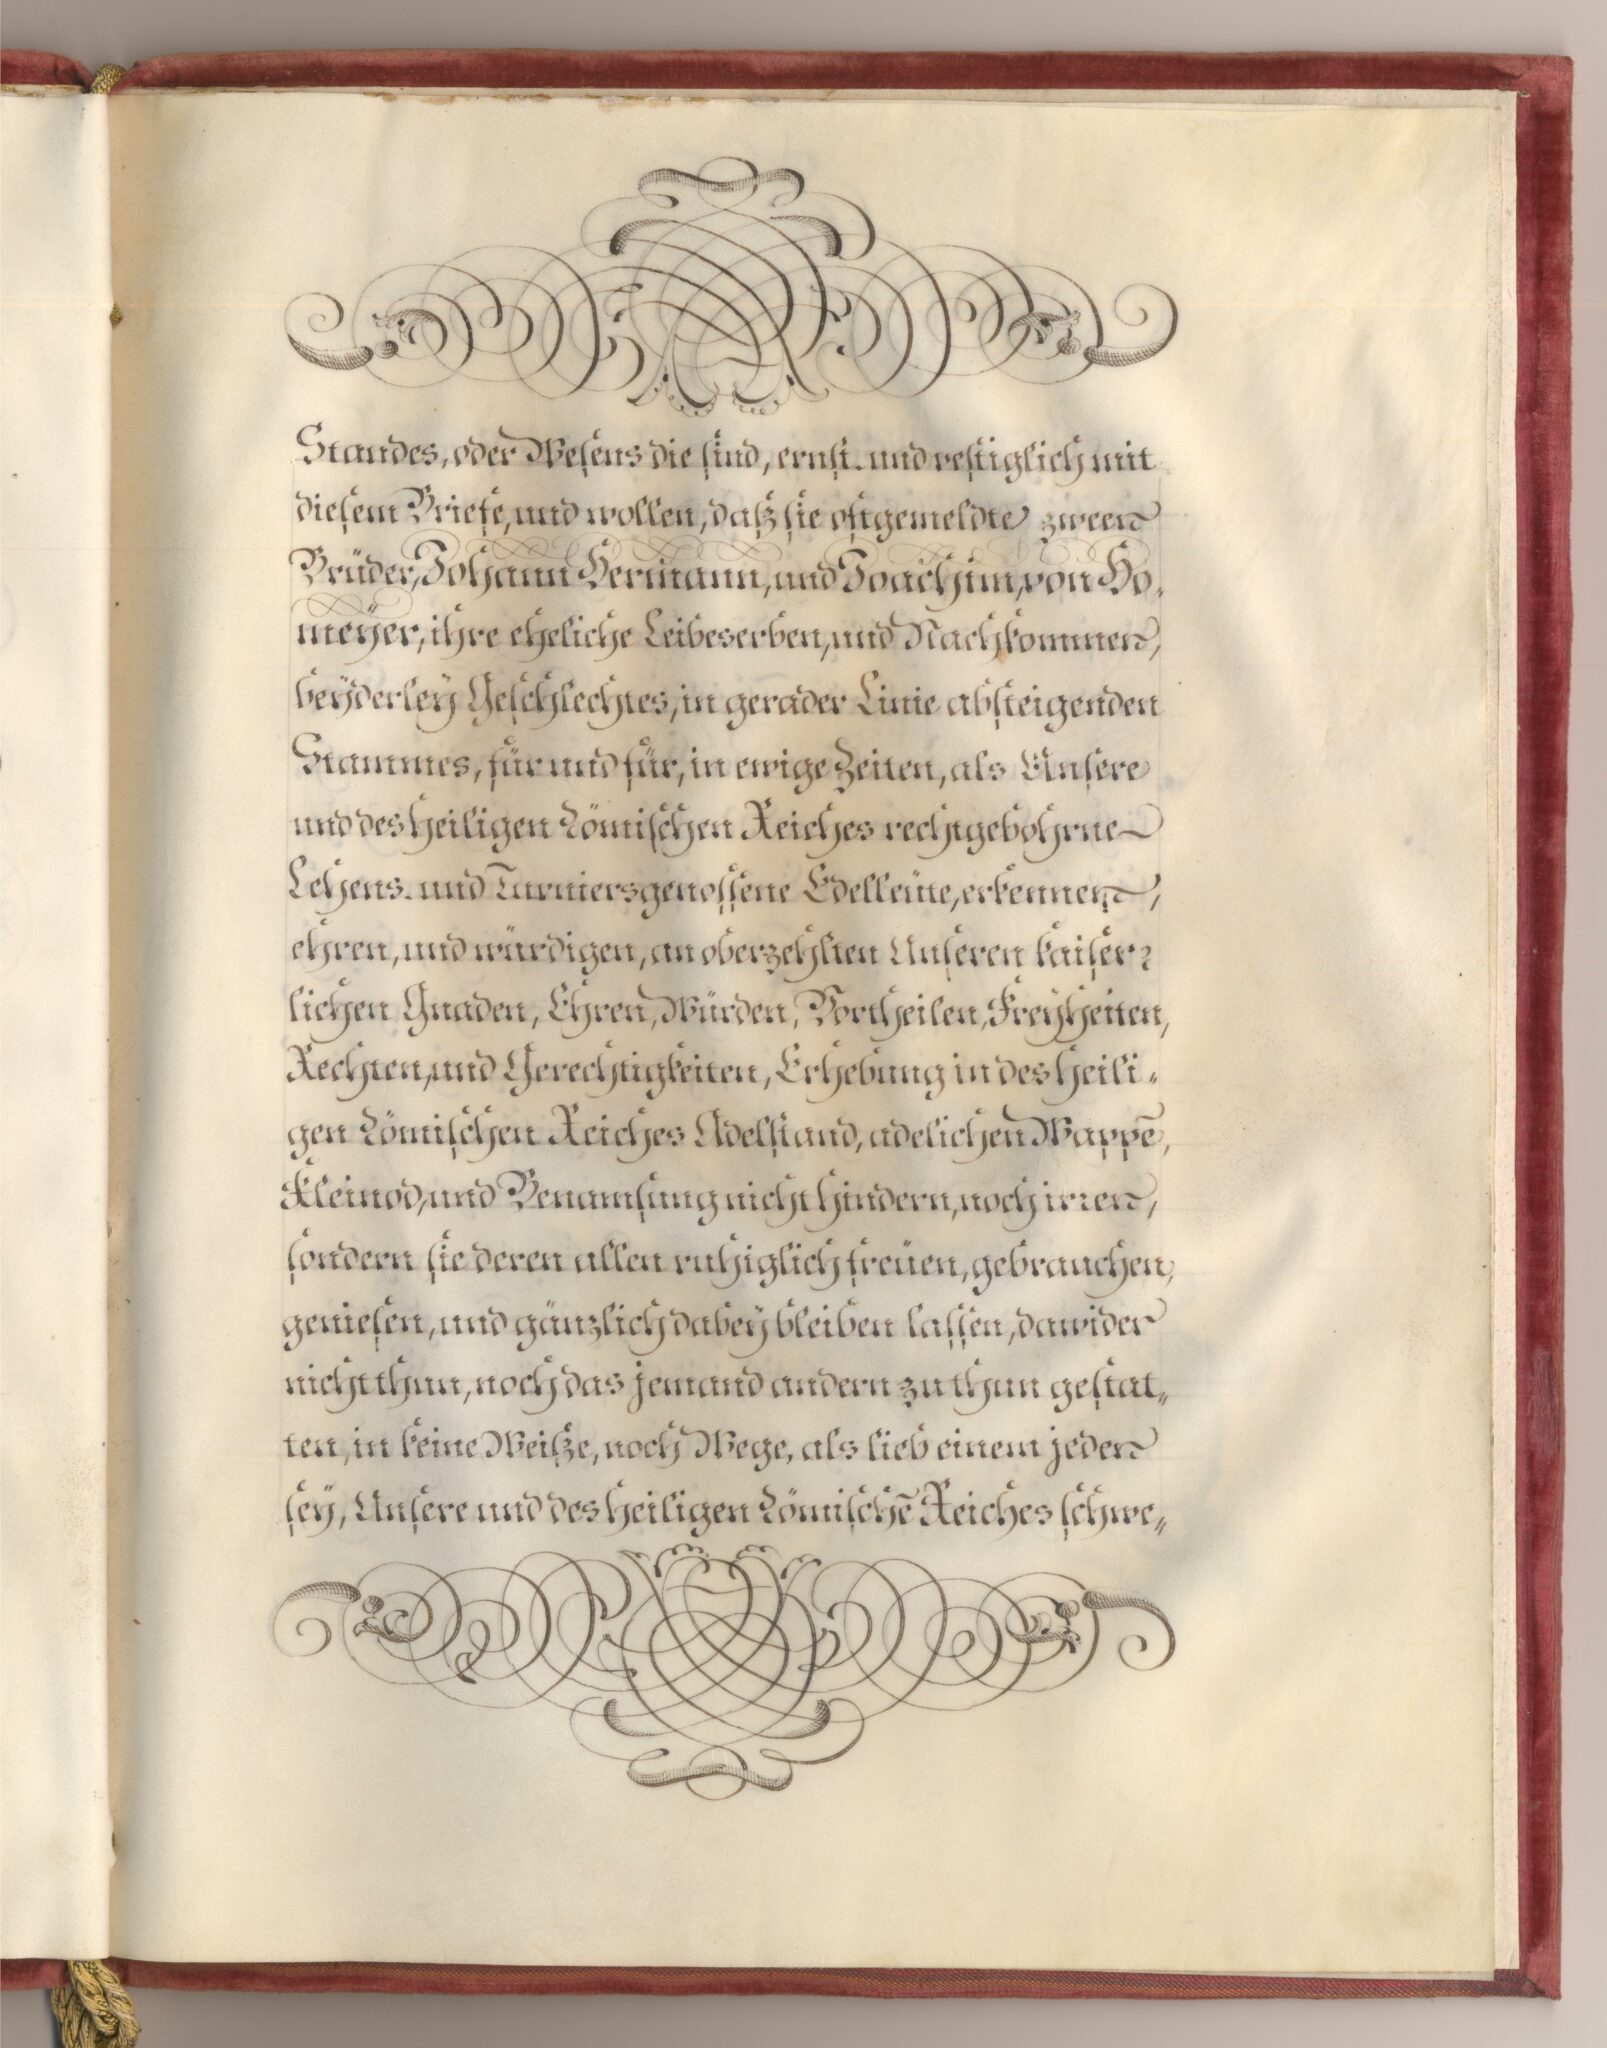 Standes, oder Wesens die sind, ernst- und vestiglich mit
diesem Briefe, und wollen, daß sie oftgemeldte zween
Brüder, Johann Hermann, und Joachim, von Ho-
meÿer, ihre eheliche Leibeserben, und Nachkommen,
beÿderleÿ Geschlechtes, in gerader Linie absteigenden
Stammes, für und für, in ewige Zeiten, als Unsere
und des heiligen Römischen Reiches rechtgebohrne
Lehens- und Turniersgenossene Edelleüte, erkennen,
ehren, und würdigen, an oberzehlten Unseren kaiser-
lichen Gnaden, Ehren, Würden, Vortheilen, Freÿheiten,
Rechten, und Gerechtigkeiten, Erhebung in des heili-
gen Römischen Reiches Adelstand, adelichen Wappē,
Kleinod, und Benamsung nicht hindern, noch irren,
sondern sie deren allen ruhiglich freüen, gebrauchen,
geniesen, und gänzlich dabeÿ bleiben lassen, dawider
nicht thun, noch das jemand andern zu thun gestat-
ten, in keine Weiße, noch Wege, als lieb einem jeden
seÿ, Unsere und des heiligen Römischē Reiches schwe-